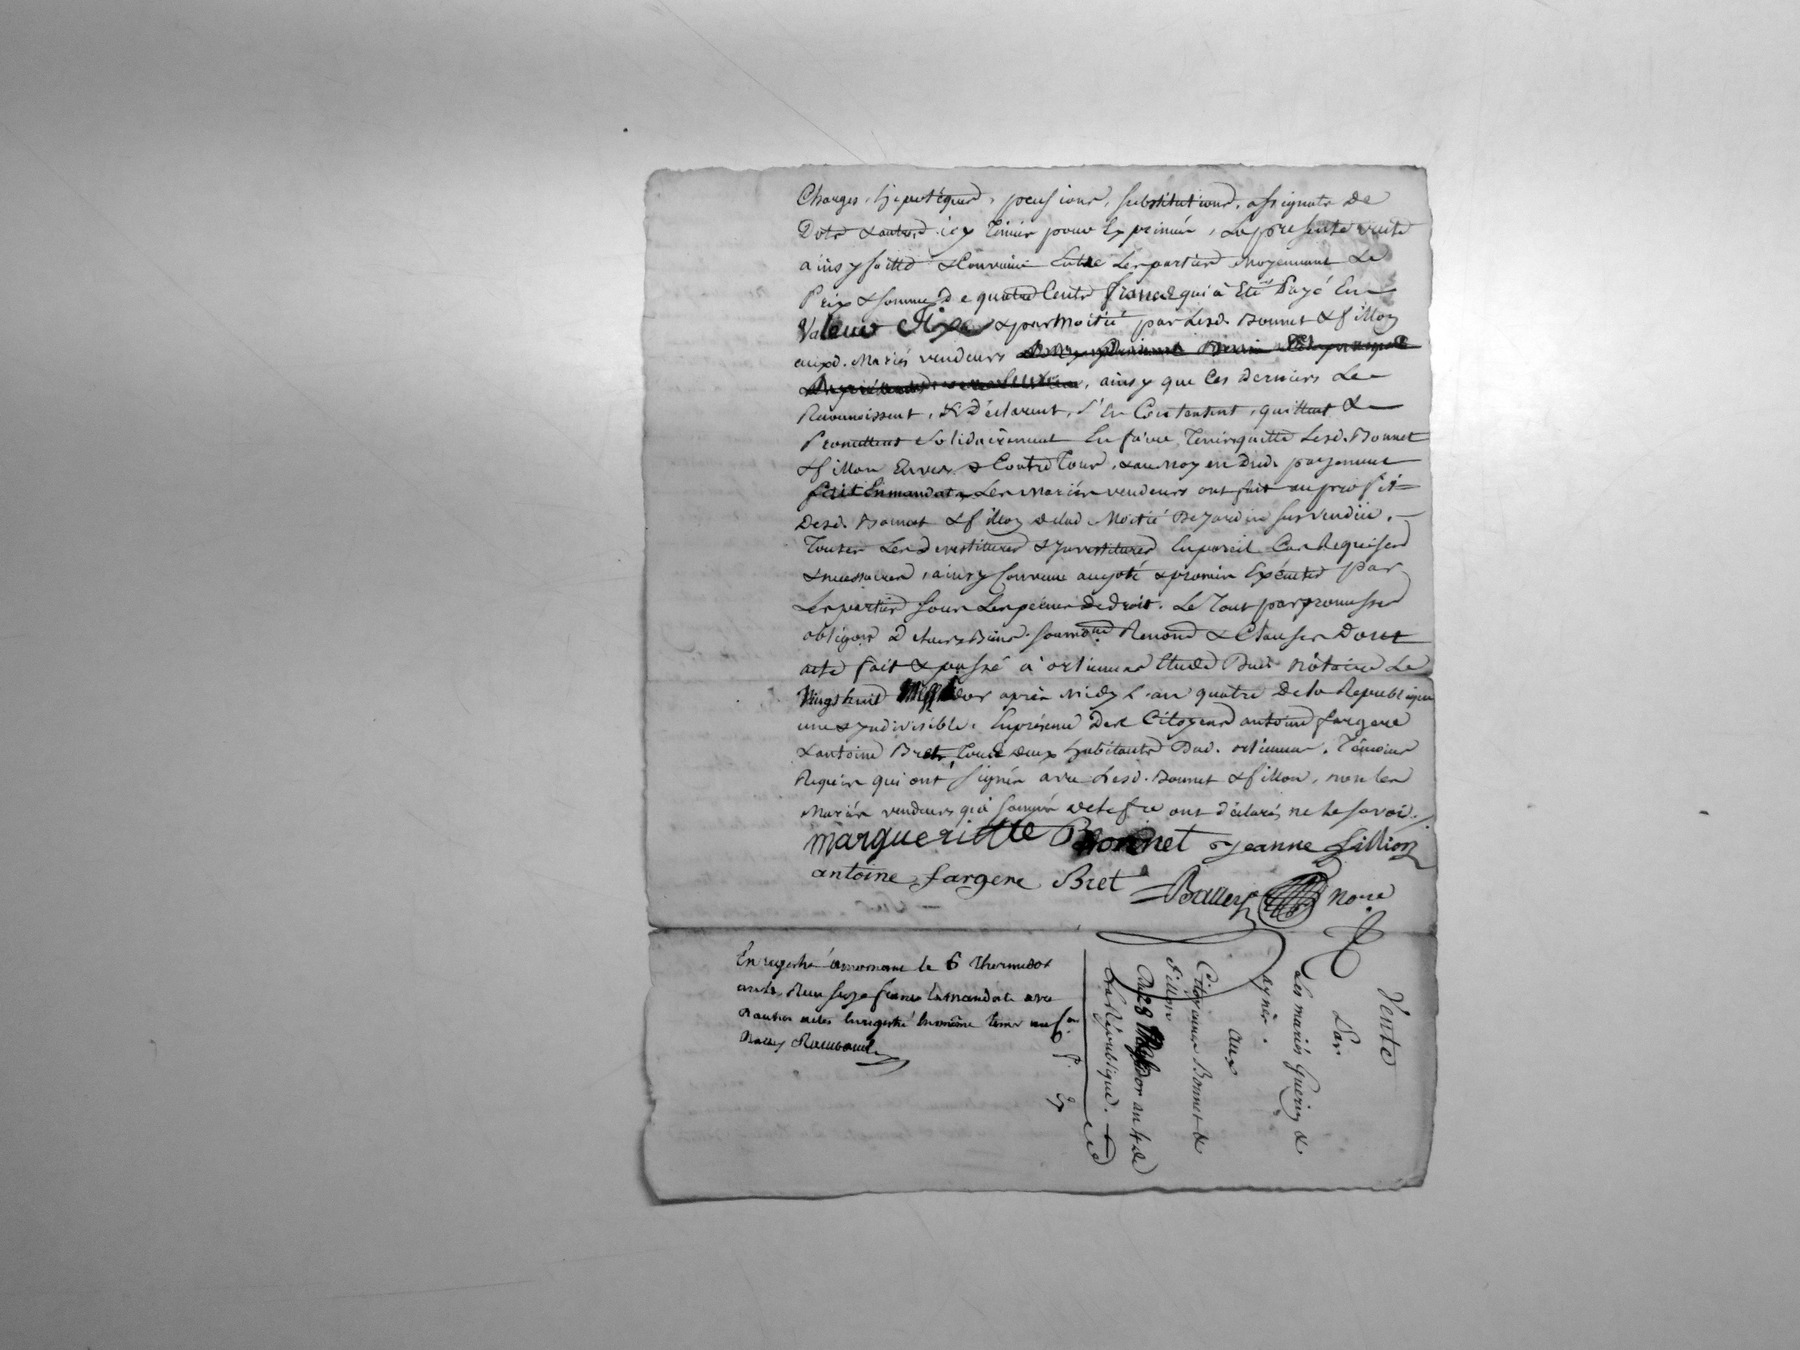 Charges, hipotèques, pensions, substitutions, assignats de
Dots & autres icy tenus pour Exprimés, La presente vente
ainsy faitte & Convenue Entre Les parties moyennant Le
Prix & somme de quatre Cents francs qui a Eté Payé En
Valeur fixe & par Moitié par Lesd. Bonnet & fillon
auxd. Mariés vendeurs
, ainsy que Ces Derniers Le
Reconnoissent, & Déclarent, s'En Contentent, quittent &
Promettent solidairement En faire Tenir quitte Lesd. Bonnet
& fillon Envers & Contre Tous, & au moyen Dud. payement
fait En mandats Les Mariés vendeurs ont fait au profit
Desd. Bonnet & fillon delad. Moitié De Jardin sus vendue,
Toutes Les Devestitures & Investitures En pareil Cas Requises
& necessaires, ainsy Convenu accepté & promis Exécuter par
Les parties sous Les peines De droit. Le Tout par promesses
obligon De leurs Biens. soumon Renon & Clauses Dont
acte fait & passé à orliennas Etude Dud. Notaire Le
Vingt huit Messidor après Midy L'an quatre De la Republique
une & Indivisible. En présence Des Citoyens antoine fargere
& antoine Bret, Tous deux habitants Dud. orliennas, Témoins
Requis qui ont signés avec Lesd. Bonnet & fillon, non les
Mariés vendeurs qui sommés de le fre ont déclarés ne le savoir.
margueritte Bonnet Jeanne fillion
antoine fargere Bret Not.re
Enregistré à mornant le 6 Thermidor
an 4. Reçu seize francs En mandats avec
D'autres actes Enregistré
Vente
Par
Les mariés Guerin &
aynès.
aux
Citoyennes Bonnet &
Fillion
Du 28 Messidor an 4 de
La République.